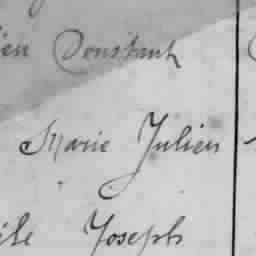 ien Constant
Marie Julien
ile Joseph